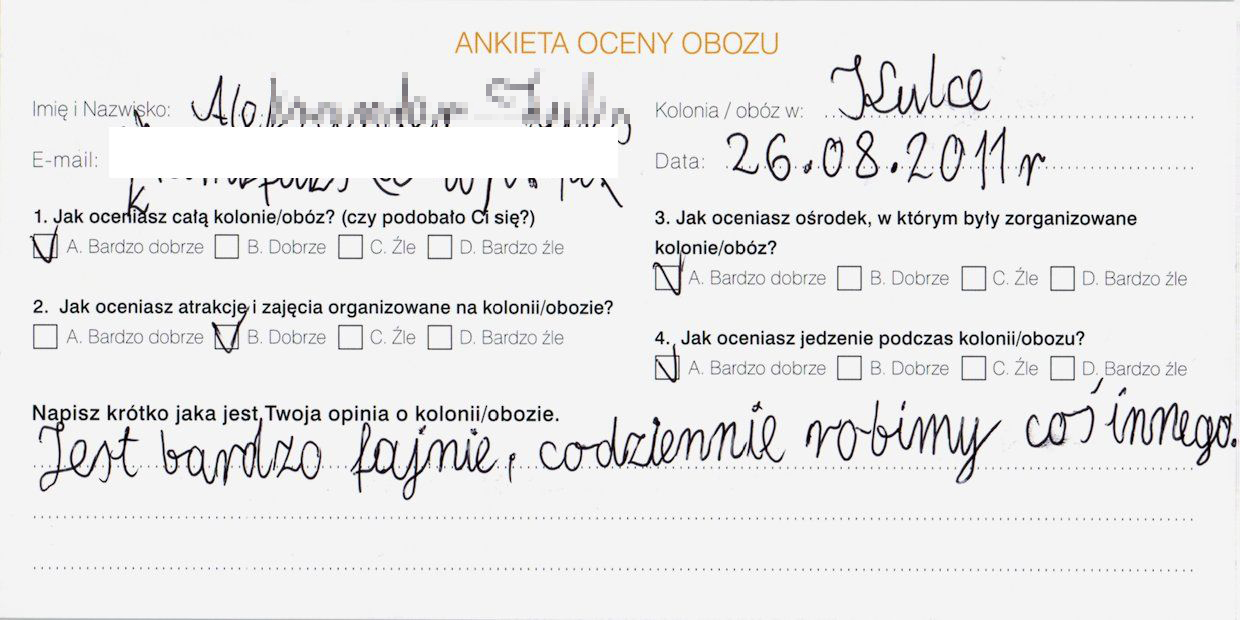 ANKIETA OCENY OBOZU
Imię i Nazwisko:
Kolonia / obóz w: Kulce
E-mail:
Data: 26.08.2011 r
1. Jak oceniasz całą kolonie/obóz? (czy podobało Ci się?)
A. Bardzo dobrze B. Dobrze C. Źle D. Bardzo źle
2. Jak oceniasz atrakcje i zajęcia organizowane na kolonii/obozie?
A. Bardzo dobrze B. Dobrze C. Źle D. Bardzo źle
3. Jak oceniasz ośrodek, w którym były zorganizowane
kolonie/obóz?
A. Bardzo dobrze B. Dobrze C. Źle D. Bardzo źle
4. Jak oceniasz jedzenie podczas kolonii/obozu?
A. Bardzo dobrze B. Dobrze C. Źle D. Bardzo źle
Napisz krótko jaka jest Twoja opinia o kolonii/obozie.
Jest bardzo fajnie, codziennie robimy coś innego.